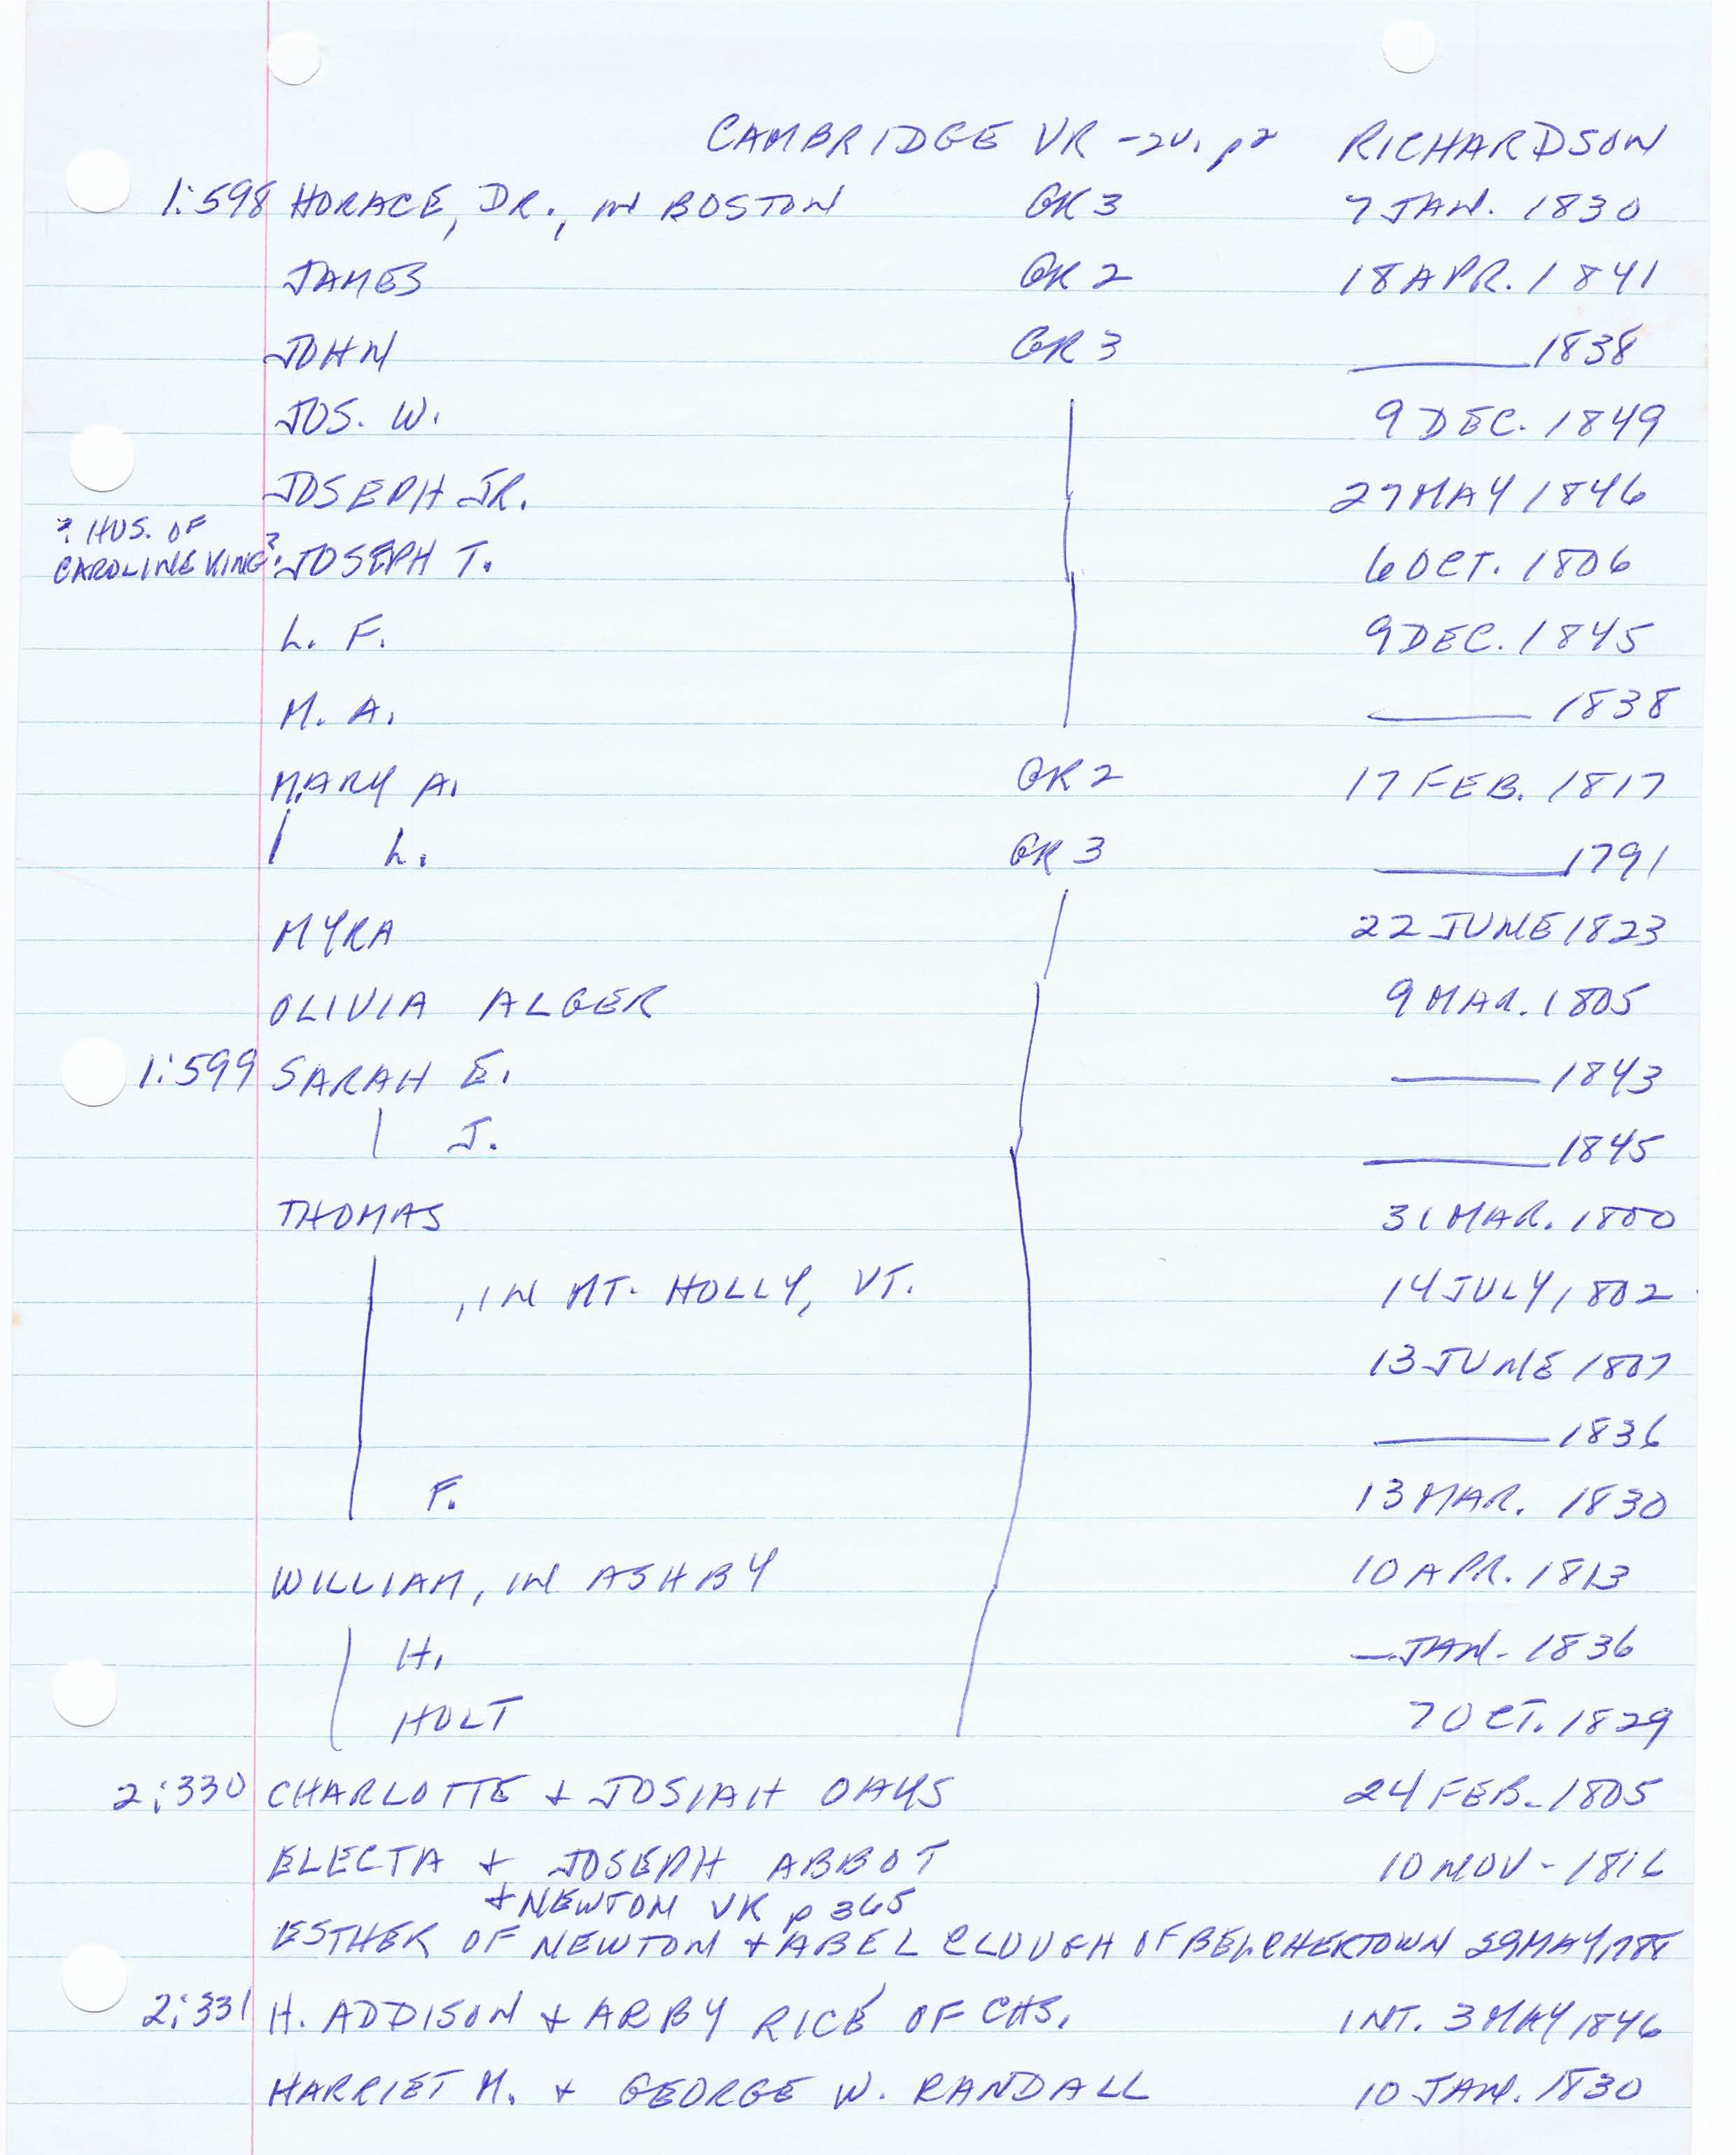 CAMBRIDGE VR - 2V. p2 RICHARDSON
1:598 HORACE, DR., IN BOSTON GR 3 7 JAN. 1830
JAMES GR 2 18 APR. 1841
JOHN GR 3 ——— 1838
JOS. W. 9 DEC. 1849
JOSEPH JR. 27 MAY 1846
? HUS. OF
CAROLINE KING? JOSEPH T. 6 OCT. 1806
L. F. 9 DEC. 1845
M. A. ——— 1838
MARY A. GR 2 17 FEB. 1817
L. GR 3 ——— 1791
MYRA 22 JUNE 1823
OLIVIA ALGER 9 MAR. 1805
1:599 SARAH E. ——— 1843
J. ——— 1845
THOMAS 31 MAR. 1800
, IN MT. HOLLY, VT. 14 JULY, 1802
13 JUNE 1807
——— 1836
F. 13 MAR. 1830
WILLIAM, IN ASHBY 10 APR. 1813
H. — JAN. 1836
HOLT 7 OCT. 1829
2:330 CHARLOTTE + JOSIAH OAKS 24 FEB. 1805
ELECTA + JOSEPH ABBOT 10 NOV - 1816
+ NEWTON VR p 365
ESTHER OF NEWTON + ABEL CLOUGH OF BELCHERTOWN 29 MAY 1788
2:331 H. ADDISON + ABBY RICE OF CHS. INT. 3 MAY 1846
HARRIET M. + GEORGE W. RANDALL 10 JAN. 1830